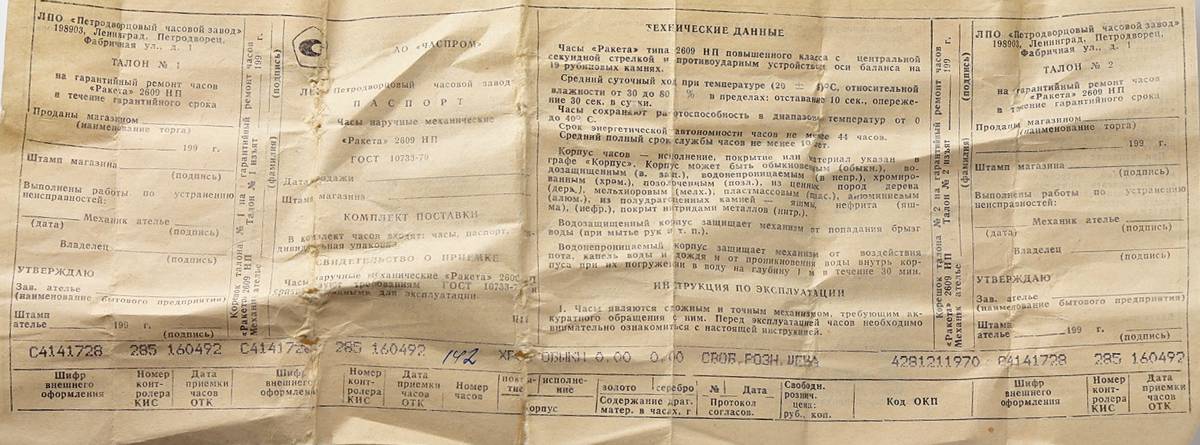 ЛПО «Петродворцовый часовой завод»
198903, Ленинград, Петродворец,
Фабричная ул., д. 1
ТАЛОН № 1
на гарантийный ремонт часов
«Ракета» 2609 НП
в течение гарантийного срока
Проданы магазином
(наименование торга)
199 г.
Штамп магазина
(подпись)
Выполнены работы по устранению
неисправностей:
Механик ателье
(дата) (подпись)
Владелец
(подпись)
УТВЕРЖДАЮ
Зав. ателье
(наименование бытового предприятия)
Штамп
ателье 199 г.
(подпись)
Корешок талона № 1 на гарантийный ремонт часов
«Ракета» 2609 НП Талон № 1 изъят 199 г.
Механик ателье (фамилия) (подпись)
АО «ЧАСПРОМ»
Петродворцовый часовой завод
ПАСПОРТ
Часы наручные механические
«Ракета» 2609 НП
ГОСТ 10733-79
Дата продажи
Штамп магазина
КОМПЛЕКТ ПОСТАВКИ
В комплект часов входят: часы, паспорт,
дивидуальная упаковка.
СВИДЕТЕЛЬСТВО О ПРИЕМКЕ
наручные механические «Ракета» 2609
требованиям ГОСТ 10733-79
для эксплуатации.
ТЕХНИЧЕСКИЕ ДАННЫЕ
Часы «Ракета» типа 2609 НП повышенного класса с центральной
секундной стрелкой и противоударным устройством оси баланса на
19 рубиновых камнях.
Средний суточный ход при температуре (20 ± )°С, относительной
влажности от 30 до 80 % в пределах: отставание 10 сек., опереже-
ние 30 сек. в сутки.
Часы сохраняют работоспособность в диапазоне температур от 0
до 40° С.
Срок энергетической автономности часов не менее 44 часов.
Средний полный срок службы часов не менее 10 лет.
Корпус часов — исполнение, покрытие или материал указан в
графе «Корпус». Корпус может быть обыкновенным (обыкн.), во-
дозащищенным (в. защ.), водонепроницаемым (в непр.), хромиро-
ванным (хром.), позолоченным (позл.), из ценных пород дерева
(дерв.), мельхиоровым (мелх.), пластмассовым (плас.), алюминиевым
(алюм.), из полудрагоценных камней — яшмы, нефрита (яш-
ма), (нефр.), покрыт нитридами металлов (нитр.).
Водозащищенный корпус защищает механизм от попадания брызг
воды (при мытье рук и т. п.).
Водонепроницаемый корпус защищает механизм от воздействия
пота, капель воды и дождя и от проникновения воды внутрь кор-
пуса при их погружении в воду на глубину 1 м в течение 30 мин.
ИНСТРУКЦИЯ ПО ЭКСПЛУАТАЦИИ
1. Часы являются сложным и точным механизмом, требующим ак-
куратного обращения с ним. Перед эксплуатацией часов необходимо
внимательно ознакомиться с настоящей инструкцией.
Корешок талона № 2 на гарантийный ремонт часов
«Ракета» 2609 НП Талон № 2 изъят 199 г.
Механик ателье (фамилия) (подпись)
ЛПО «Петродворцовый часовой завод»
198903, Ленинград, Петродворец,
Фабричная ул., д. 1
ТАЛОН № 2
на гарантийный ремонт часов
«Ракета» 2609 НП
в течение гарантийного срока
Проданы магазином
(наименование торга)
199 г.
Штамп магазина
(подпись)
Выполнены работы по устранению
неисправностей:
Механик ателье
(дата) (подпись)
Владелец
(подпись)
УТВЕРЖДАЮ
Зав. ателье
(наименование бытового предприятия)
Штамп
ателье 199 г.
(подпись)
С4141728 285 160492 С4141728 285 160492 142 ХР ОБЫКН 0.00 0.00 СВОБ.РОЗН.ЦЕНА 4281211970 С4141728 285 160492
Шифр внешнего оформления
Номер контролера КИС
Дата приемки ОТК
Шифр внешнего оформления
Номер контролера КИС
Дата приемки ОТК
Номер часов
покрытие
исполнение
корпус
золото серебро
Содержание драг. матер. в часах, г
№ Дата
Протокол согласов.
Свободн. рознич. цена: руб., коп.
Код ОКП
Шифр внешнего оформления
Номер контролера КИС
Дата приемки ОТК